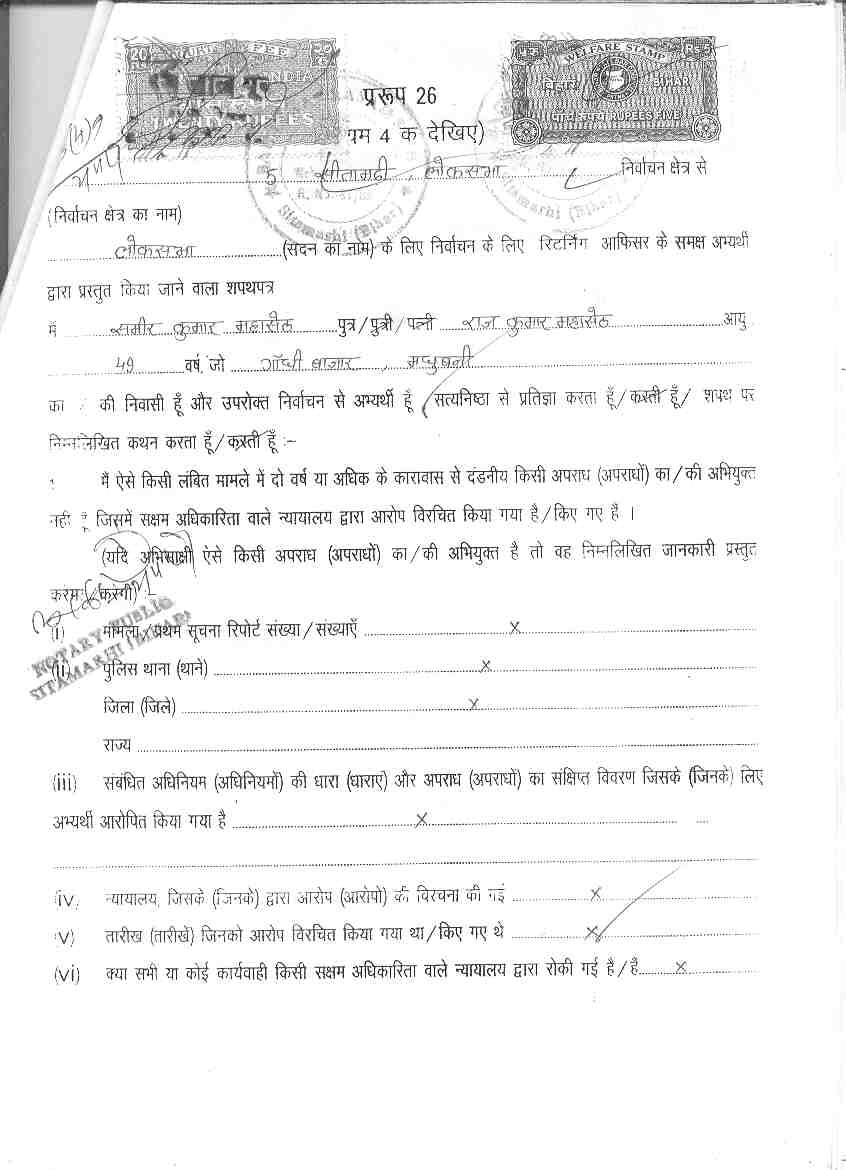 20 COURT FEE 20
INDIA
TWENTY RUPEES
WELFARE STAMP Rs 5
बिहार BIHAR
पाँच रूपये RUPEES FIVE
प्ररूप 26
4 क देखिए)
5 सीतामढ़ी, लोकसभा निर्वाचन क्षेत्र से
Sitamarhi (Bihar)
Sitamarhi (Bihar)
(निर्वाचन क्षेत्र का नाम)
लोकसभा (सदन का नाम) के लिए निर्वाचन के लिए रिटर्निंग आफिसर के समक्ष अभ्यर्थी
द्वारा प्रस्तुत किया जाने वाला शपथपत्र
मैं समीर कुमार महासेठ पुत्र/पुत्री/पत्नी राज कुमार महासेठ आयु
49 वर्ष, जो गाँधी बाजार, मधुबनी
का की निवासी हूँ और उपरोक्त निर्वाचन से अभ्यर्थी हूँ, सत्यनिष्ठा से प्रतिज्ञा करता हूँ/करती हूँ/ शपथ पर
निम्नलिखित कथन करता हूँ/करती हूँ :-
1 मैं ऐसे किसी लंबित मामले में दो वर्ष या अधिक के कारावास से दंडनीय किसी अपराध (अपराधों) का/की अभियुक्त
नहीं हूँ जिसमें सक्षम अधिकारिता वाले न्यायालय द्वारा आरोप विरचित किया गया है/किए गए हैं ।
(यदि अभिसाक्षी ऐसे किसी अपराध (अपराधों) का/की अभियुक्त है तो वह निम्नलिखित जानकारी प्रस्तुत
करेगा (करेगी) :-
(i) मामला/प्रथम सूचना रिपोर्ट संख्या/संख्याएँ x
NOTARY PUBLIC
SITAMARHI (BIHAR)
(ii) पुलिस थाना (थाने) x
जिला (जिले) x
राज्य
(iii) संबंधित अधिनियम (अधिनियमों) की धारा (धाराएं) और अपराध (अपराधों) का संक्षिप्त विवरण जिसके (जिनके) लिए
अभ्यर्थी आरोपित किया गया है x
iv) न्यायालय, जिसके (जिनके) द्वारा आरोप (आरोपो) की विरचना की गई x
v) तारीख (तारीखें) जिनको आरोप विरचित किया गया था/किए गए थे x
(vi) क्या सभी या कोई कार्यवाही किसी सक्षम अधिकारिता वाले न्यायालय द्वारा रोकी गई है/हैं x